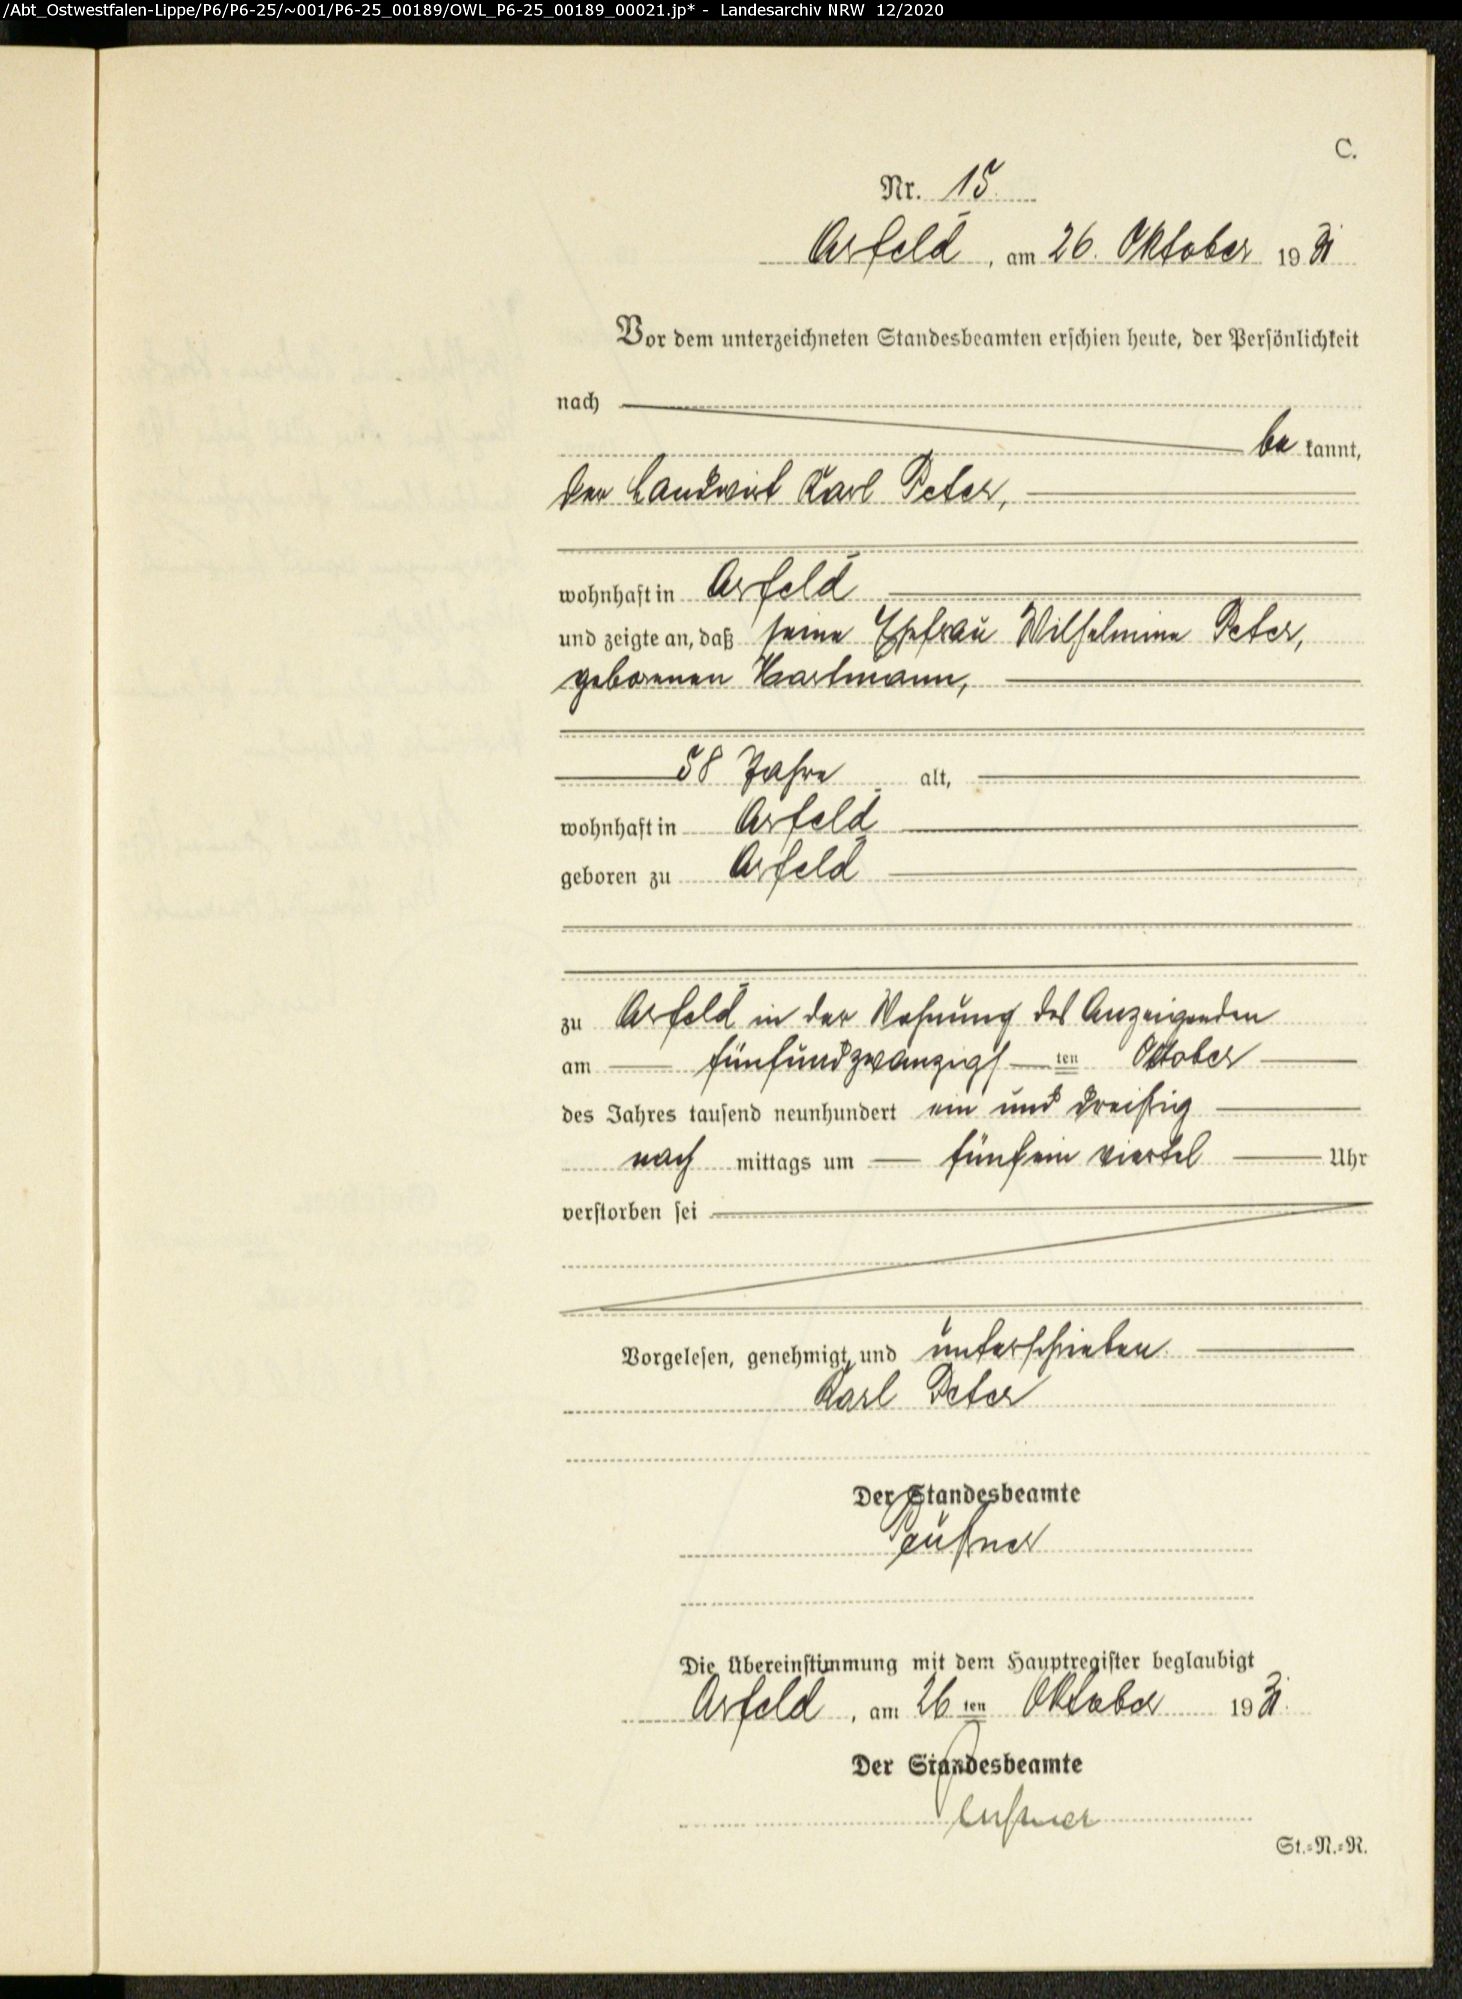 /Abt_Ostwestfalen-Lippe/P6/P6-25/~001/P6-25_00189/OWL_P6-25_00189_00021.jp* - Landesarchiv NRW 12/2020
C.
Nr. 15
Arfeld, am 26. Oktober 19 31
Vor dem unterzeichneten Standesbeamten erschien heute, der Persönlichkeit
nach
be kannt,
der Landwirt Karl Peter,
wohnhaft in Arfeld
und zeigte an, daß seine Ehefrau Wilhelmine Peter,
geborenen Hartmann,
58 Jahre alt,
wohnhaft in Arfeld
geboren zu Arfeld
zu Arfeld in der Wohnung des Anzeigenden
am fünfundzwanzigs ten Oktober
des Jahres tausend neunhundert ein und dreißig
nach mittags um fünf ein viertel Uhr
verstorben sei
Vorgelesen, genehmigt und unterschrieben
Karl Peter
Der Standesbeamte
Peußner
Die Übereinstimmung mit dem Hauptregister beglaubigt
Arfeld, am 26 ten Oktober 19 31.
Der Standesbeamte
Peußner
St.=N.=R.